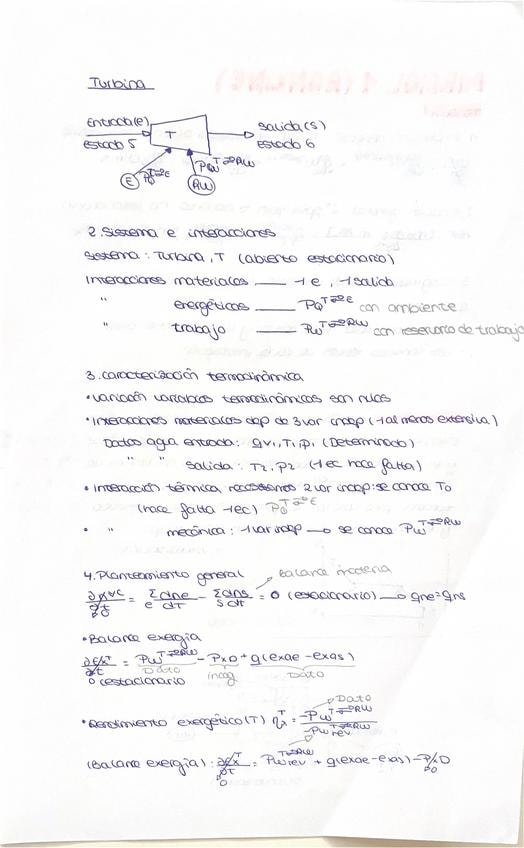 Turbina
Entrada(e)
Estado 5
T
Salida(s)
Estado 6
E
PQ T⇌E
RW
PW T⇌RW
2. Sistema e interacciones
Sistema: Turbina, T (abierto estacionario)
Interacciones materiales — 1 e, 1 salida
" energéticos — PQ T⇌E con ambiente
" trabajo — PW T⇌RW con reservorio de trabajo
3. Caracterización termodinámica
• Variación variables termodinámicas son nulas
• Interacciones materiales dep de 3 var indep (1 al menos extensiva)
Datos agua entrada: qv1, T1, P1 (Determinado)
" " salida: T2, P2 (1ec hace falta)
• Interacción térmica necesitamos 2 var indep: se conoce T0
(hace falta 1ec) PQ T⇌E
• " mecánica: 1 var indep → se conoce PW T⇌RW
4. Planteamiento general
Balance materia
∂N VC/∂t = Σe dne/dt - Σs dns/dt = 0 (estacionario) → qne = qns
• Balance exergía
∂Ex T/∂t = PW T⇌RW - PXD + q(exae - exas)
0 (estacionario Dato incog Dato
• Rendimiento exergético (T) ηx T = -PW T⇌RW / -PW rev T⇌RW
Dato
(Balance exergía): ∂Ex T/∂t = PW rev T⇌RW + q(exae - exas) - PXD
0 0